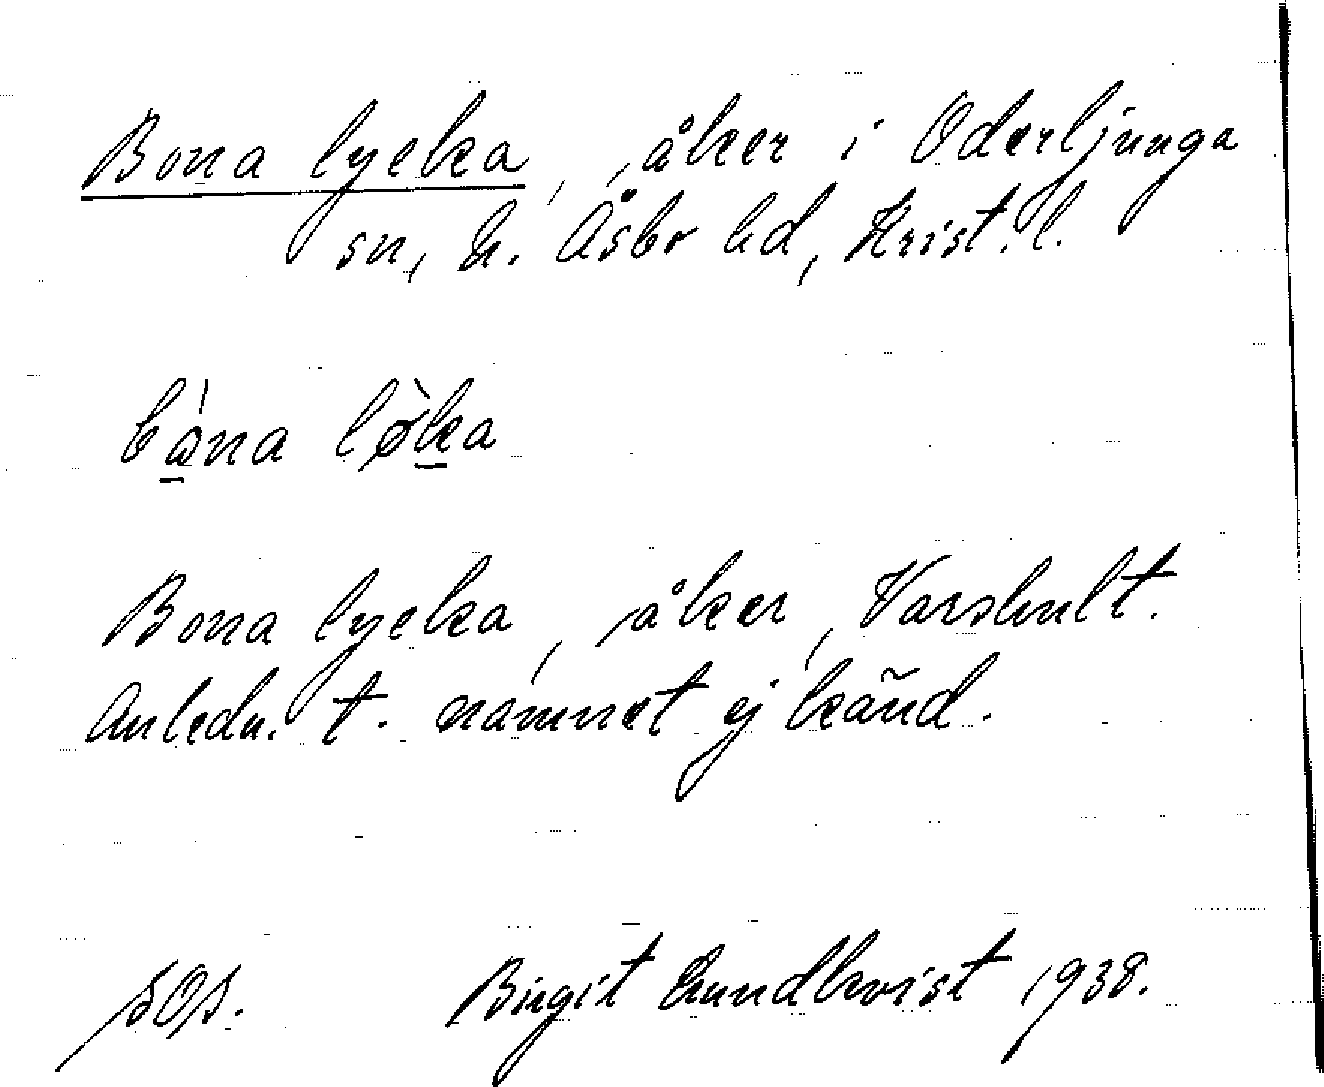 Bona lycka, åker i Oderljunga
sn, N. Åsbo hd, Krist. l.
bòna lø̀ka
Bona lycka, åker, Varshult.
Anledn. t. namnet ej känd.
SOS. Birgit Lundkvist 1938.